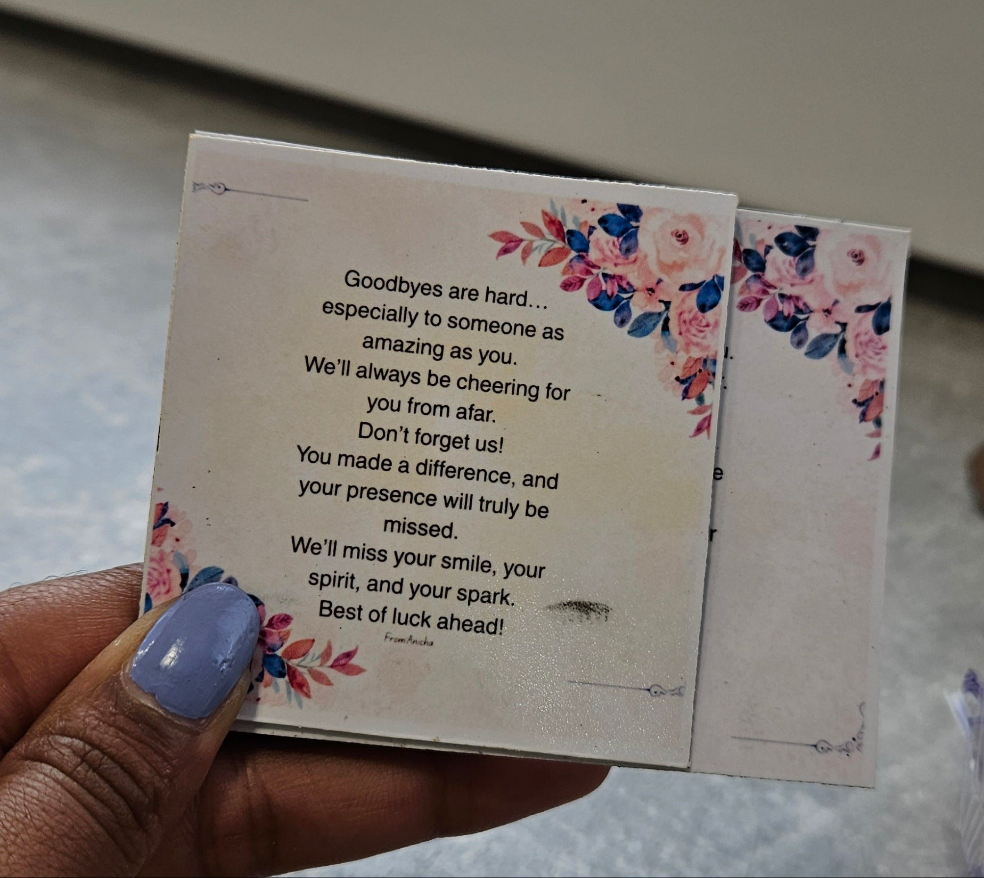 Goodbyes are hard…
especially to someone as
amazing as you.
We’ll always be cheering for
you from afar.
Don’t forget us!
You made a difference, and
your presence will truly be
missed.
We’ll miss your smile, your
spirit, and your spark.
Best of luck ahead!
From Anisha